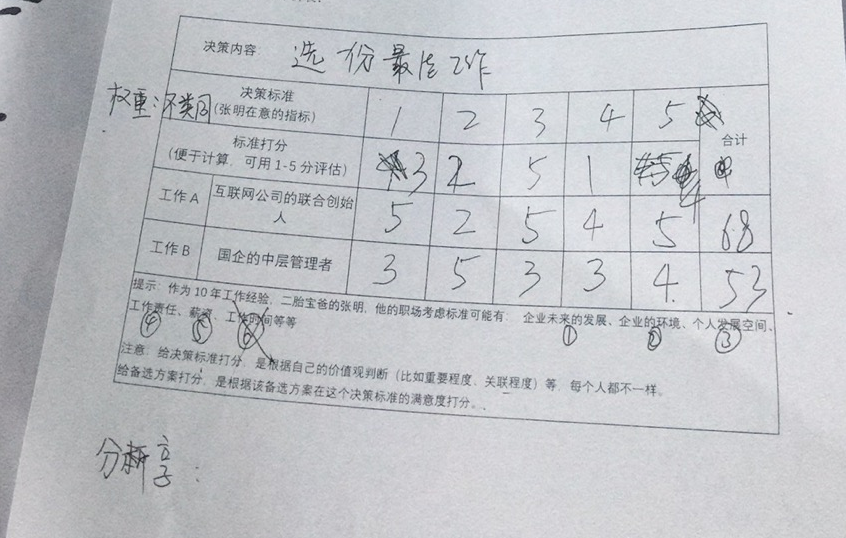 决策内容: 选份最佳工作
权重: 决策标准 1 2 3 4 5 合计
(张明在意的指标)
标准打分 3 2 5 1 4
(便于计算,可用1-5分评估)
工作A 互联网公司的联合创始人 5 2 5 4 5 68
工作B 国企的中层管理者 3 5 3 3 4 53
提示:作为10年工作经验,二胎宝爸的张明,他的职场考虑标准可能有: 企业未来的发展、企业的环境、个人发展空间、
工作责任、薪资、工作时间等等
④ ⑤ ⑥ ① ② ③
注意:给决策标准打分,是根据自己的价值观判断(比如重要程度、关联程度)等,每个人都不一样。
给备选方案打分,是根据该备选方案在这个决策标准的满意度打分。
分享: